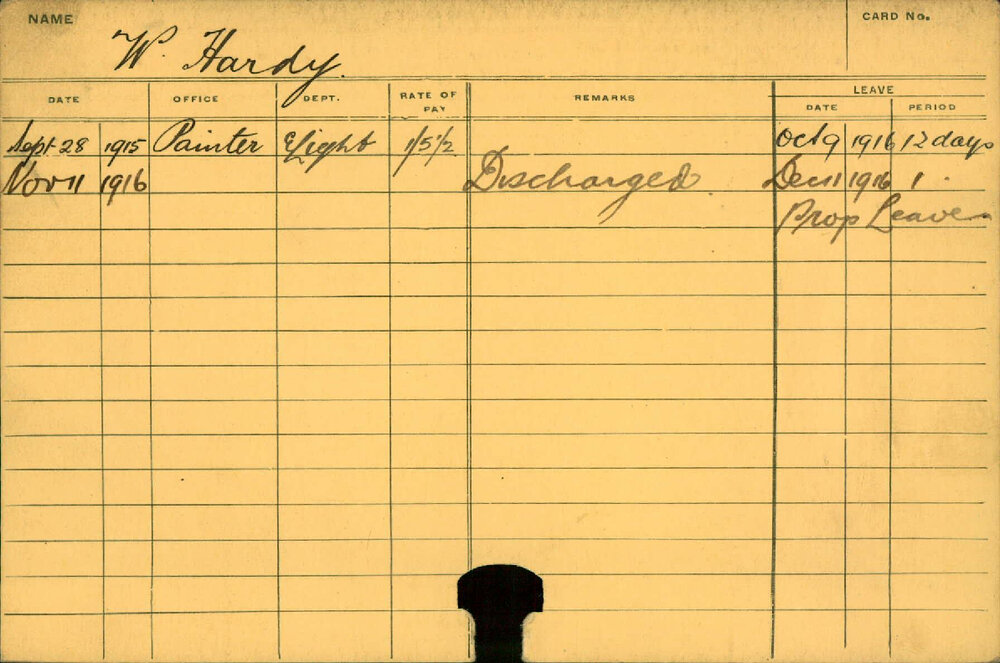 NAME CARD No.
W. Hardy.
LEAVE
DATE OFFICE DEPT. RATE OF PAY REMARKS DATE PERIOD
Sept 28 1915 Painter ELight 1/5½ Oct 9 1916 12 days
Nov 11 1916 Discharged. Dec 11 1916 1
Prop Leave